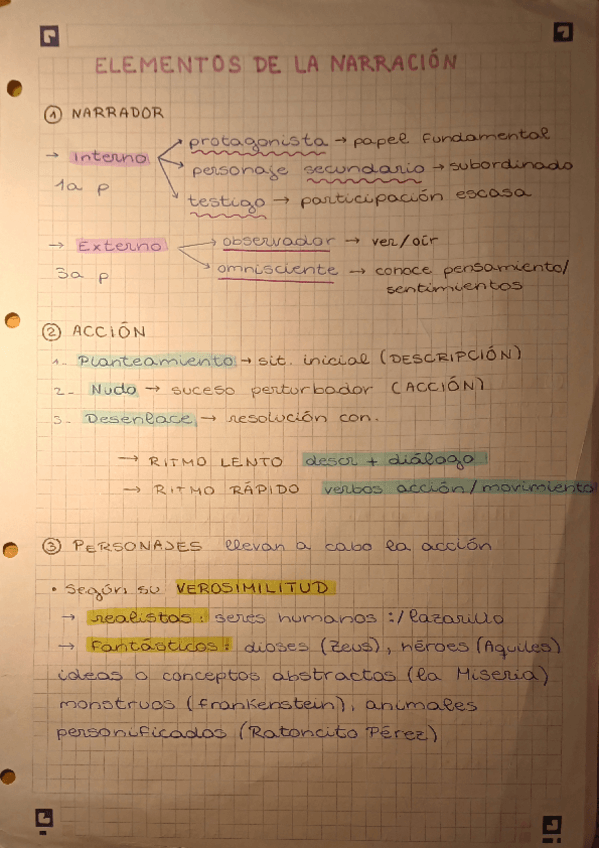 ELEMENTOS DE LA NARRACIÓN
① NARRADOR
→ Interno → protagonista → papel fundamental
→ personaje secundario → subordinado
1a p
→ testigo → participación escasa
→ Externo → observador → ver/oír
3a p
→ omnisciente → conoce pensamiento/
sentimientos
② ACCIÓN
1- Planteamiento → sit. inicial (DESCRIPCIÓN)
2- Nudo → suceso perturbador (ACCIÓN)
3- Desenlace → resolución con.
→ RITMO LENTO descr + diálogo
→ RITMO RÁPIDO verbos acción/movimiento
③ PERSONAJES llevan a cabo la acción
• Según su VEROSIMILITUD
→ realistas: seres humanos :/ lazarillo
→ fantásticos: dioses (Zeus), héroes (Aquiles)
ideas o conceptos abstractos (la Miseria)
monstruos (frankenstein), animales
personificados (Ratoncito Pérez)